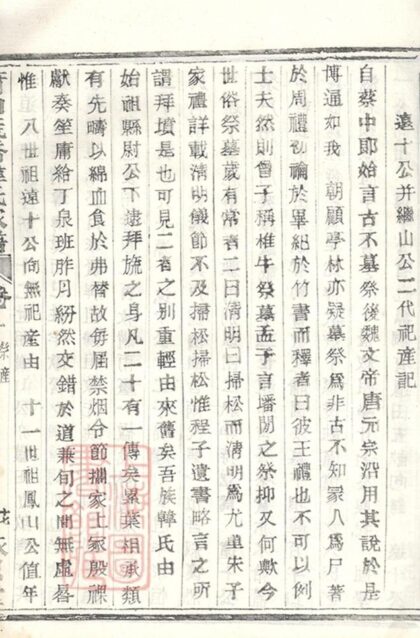 遠十公并繼山公二代祀產記
自蔡中郎始言古不墓祭後魏文帝唐元宗沿用其說於是
博通如我 朝顧亭林亦疑墓祭爲非古不知冢人爲尸著
於周禮初禴於畢紀於竹書而釋者曰彼王禮也不可以例
士夫然則曾子稱椎牛祭墓孟子言墦閒之祭抑又何歟今
世俗祭墓歲有常者二曰清明曰掃松而清明爲尤重朱子
家禮詳載清明儀節不及掃松掃松惟程子遺書略言之所
謂拜墳是也可見二者之別重輕由來舊矣吾族韓氏由
始祖縣尉公下逮拜旒之身凡二十有一傳矣累葉相承類
有先疇以綿血食於弗替故每屆禁烟令節擷家土冢殷祼
獻奏笙庸給丁泉班胙月紛然交錯於道兼旬之間無虛晷
惟 八世祖遠十公向無祀產由 十一世祖鳳山公值年